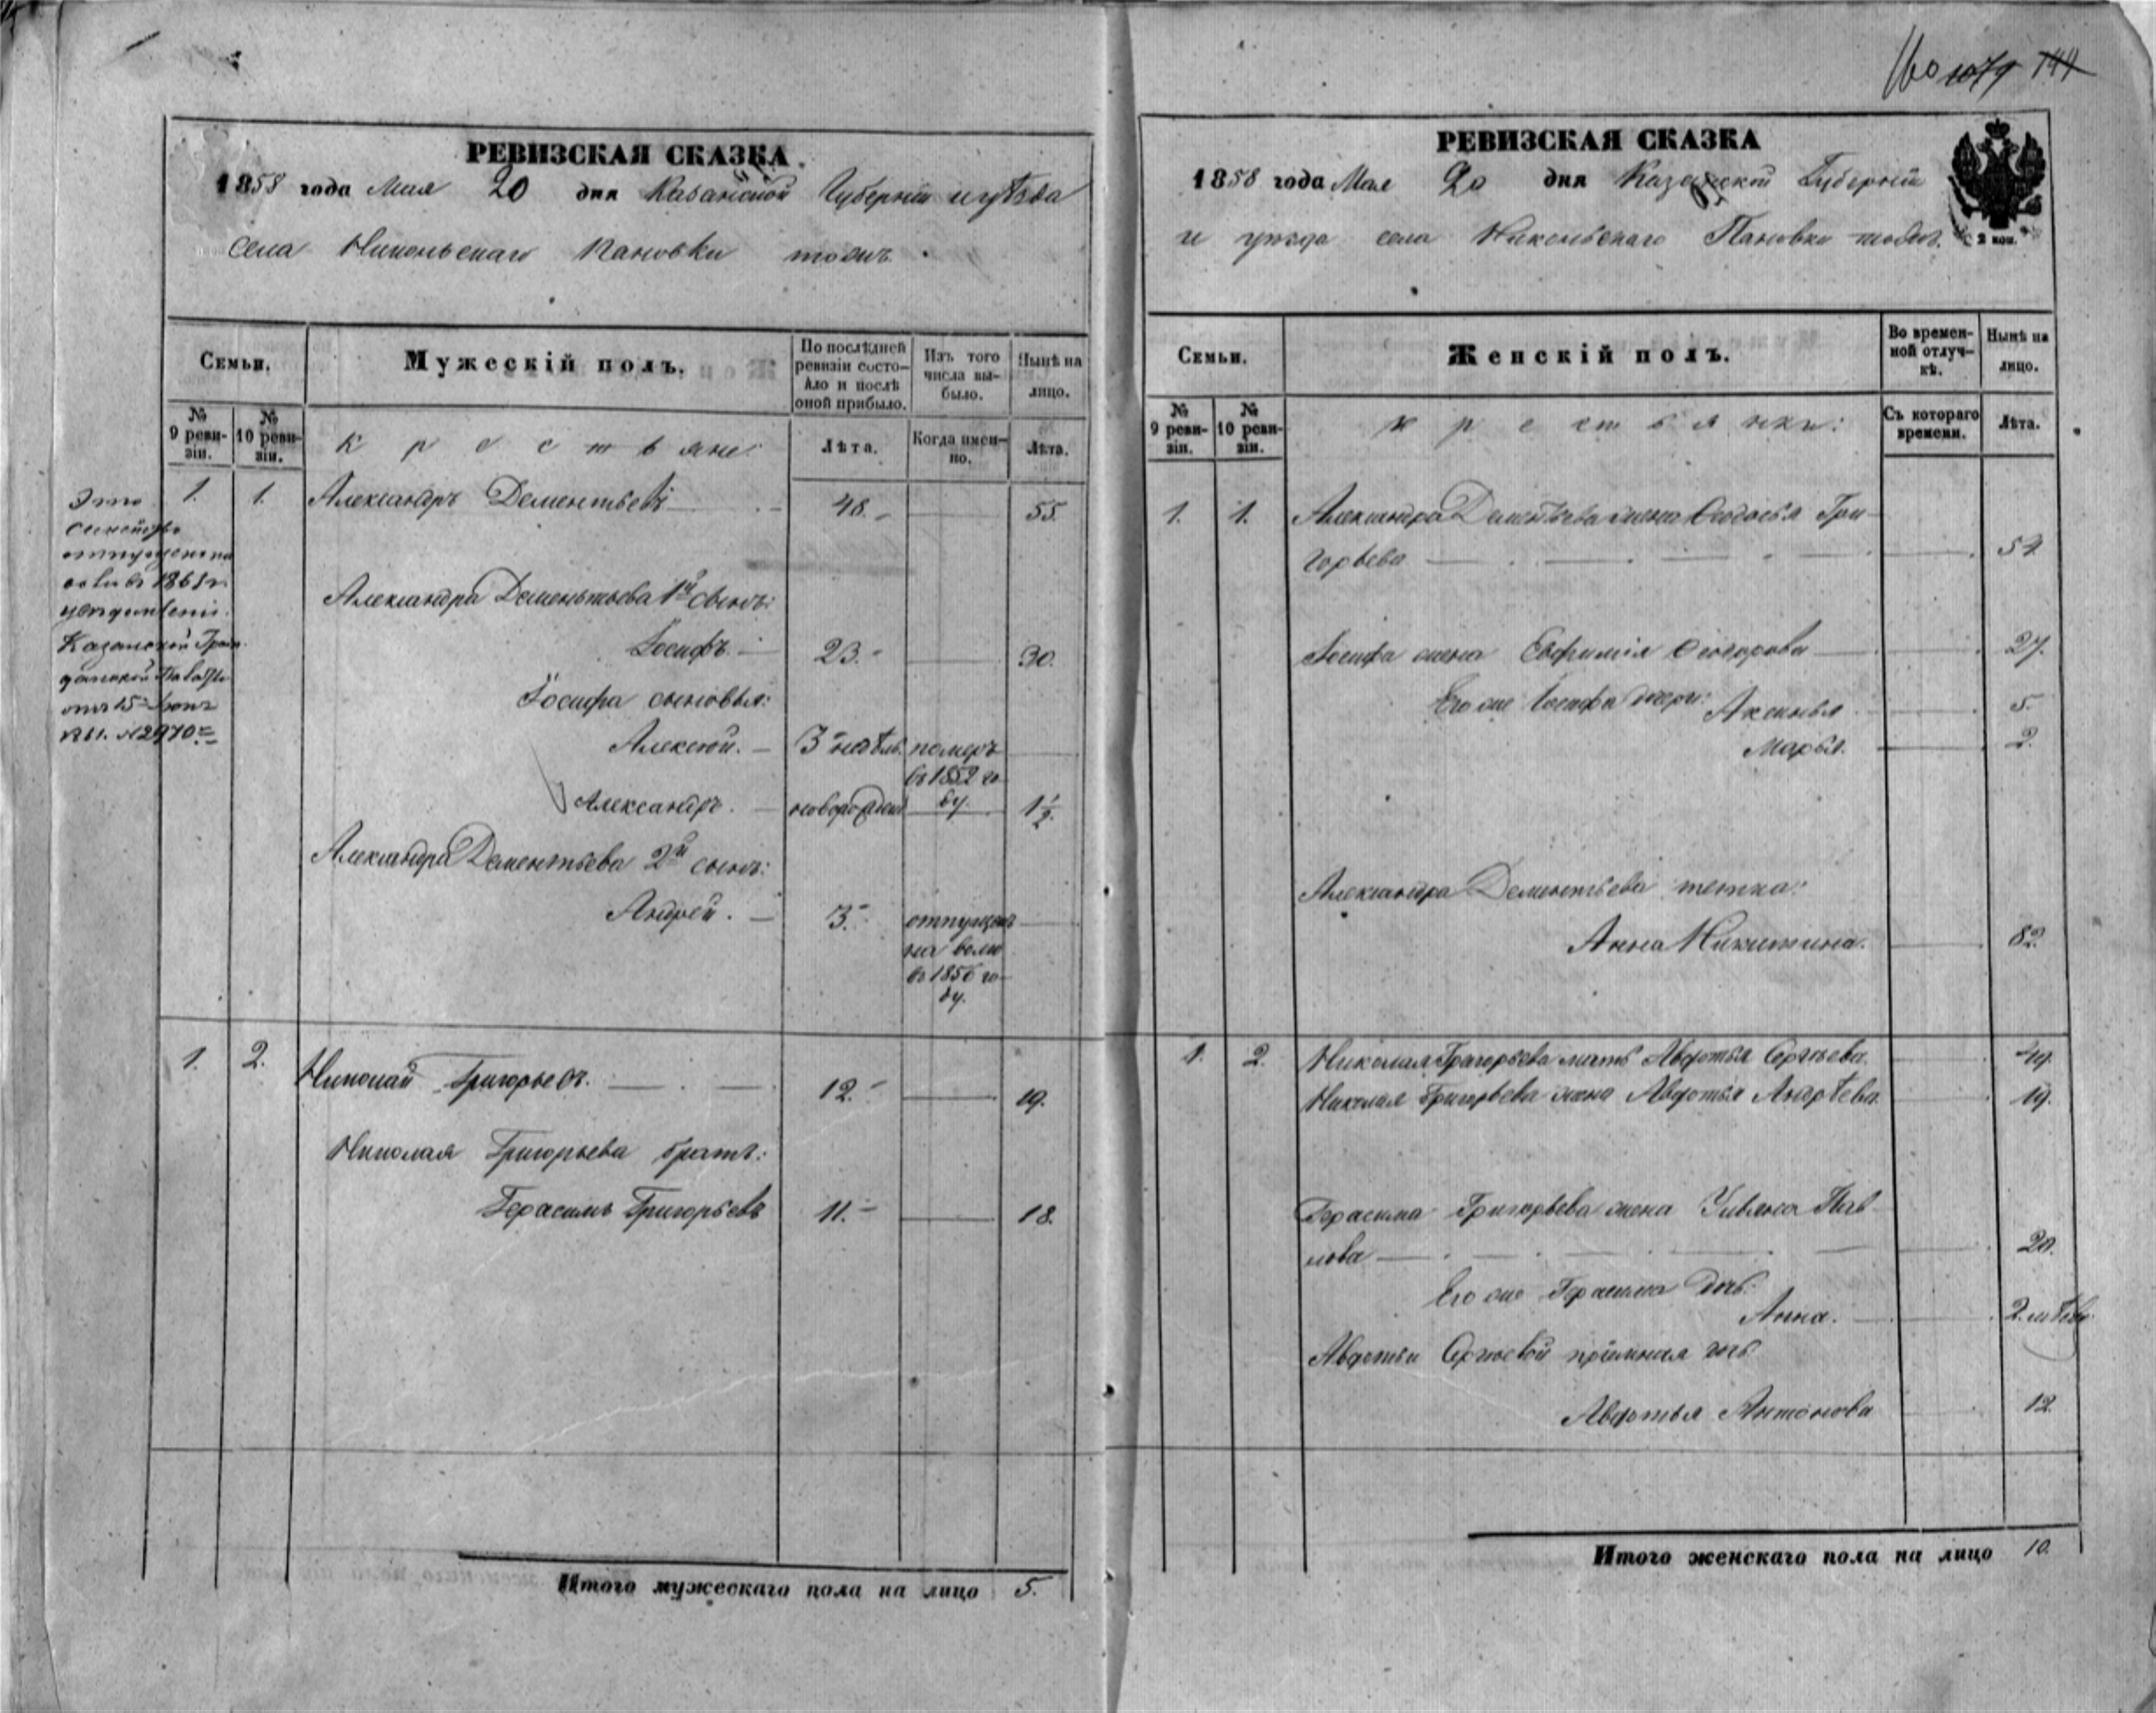 РЕВИЗСКАЯ СКАЗКА
1858 года Мая 20 дня Казанской Губерніи и уѣзда
села Никольскаго Пановки тожъ.
Семьи.
Мужескій полъ.
По послѣдней ревизіи состояло и послѣ оной прибыло.
Изъ того числа выбыло.
Нынѣ на лицо.
№ 9 ревизіи.
№ 10 ревизіи.
крестьяне:
Лѣта.
Когда именно.
Лѣта.
Это
семейство
отпущено на
волю въ 1861 г.
Казанской Граж
данской Палаты
отъ 15 Іюня
1861. № 2970
1. 1. Александръ Дементьевъ 48. 55.
Александра Дементьева 1й сынъ:
Іосифъ. 23. 30.
Іосифа сыновья:
Алексѣй. 3 недѣль. померъ
въ 1852 го
ду.
Александръ. новорожден 1½.
Александра Дементьева 2й сынъ:
Андрей. 3. отпущенъ
на волю
въ 1856 го
ду.
1. 2. Николай Григорьевъ. 12. 19.
Николая Григорьева братъ:
Герасимъ Григорьевъ 11. 18.
Итого мужескаго пола на лицо 5.
160 1079 744
РЕВИЗСКАЯ СКАЗКА
1858 года Мая 20 дня Казанской Губерніи
и уѣзда села Никольскаго Пановки тожъ.
2 коп.
Семьи.
Женскій полъ.
Во временной отлучкѣ.
Нынѣ на лицо.
№ 9 ревизіи.
№ 10 ревизіи.
крестьянки:
Съ котораго времени.
Лѣта.
1. 1. Александра Дементьева жена Федосья Гри
горьева 54
Іосифа жена Евфимія Федорова 27.
Его же Іосифа дочери: Аксинья 5.
Марья. 2.
Александра Дементьева тетка:
Анна Никитина. 82.
1. 2. Николая Григорьева мать Авдотья Сергѣева. 49.
Николая Григорьева жена Авдотья Андрѣева. 19.
Герасима Григорьева жена Ульяна Пав
лова 20.
Его же Герасима дочь:
Анна. 2 недѣль
Авдотьи Сергѣевой пріемная дочь:
Авдотья Антонова 12.
Итого женскаго пола на лицо 10.